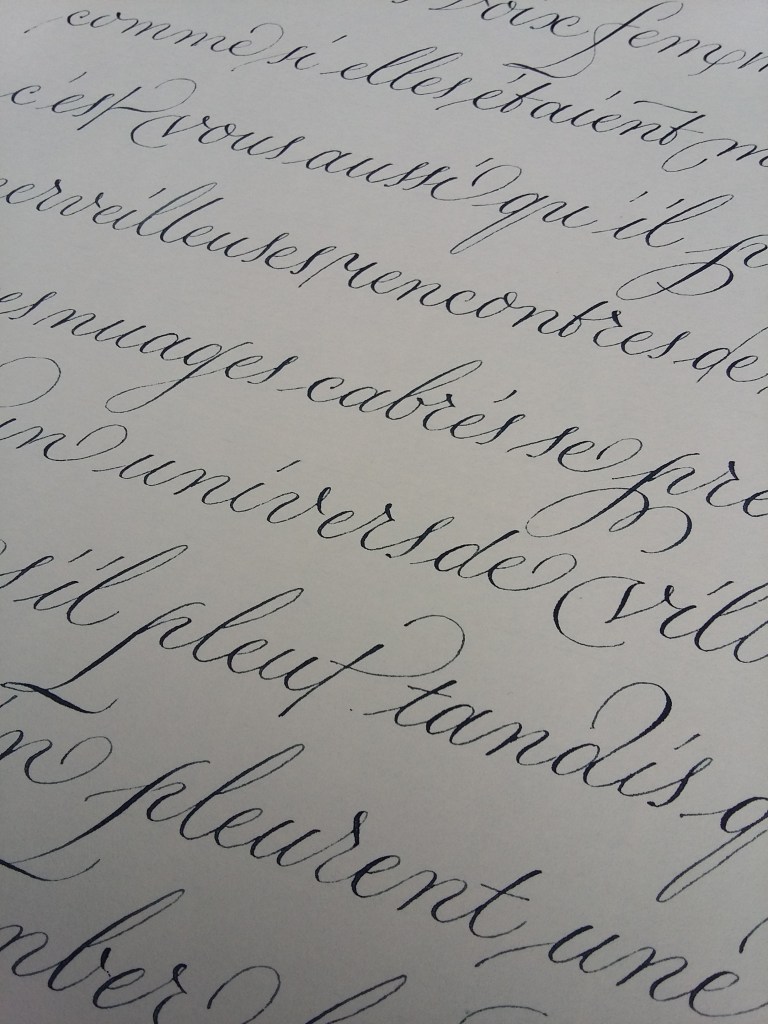 voix fem
comme si elles étaient m
c'est vous aussi qu'il p
erveilleuses rencontres de
es nuages cabrés se pre
un univers de vill
s'il pleut tandis q
n pleurent une
mber l